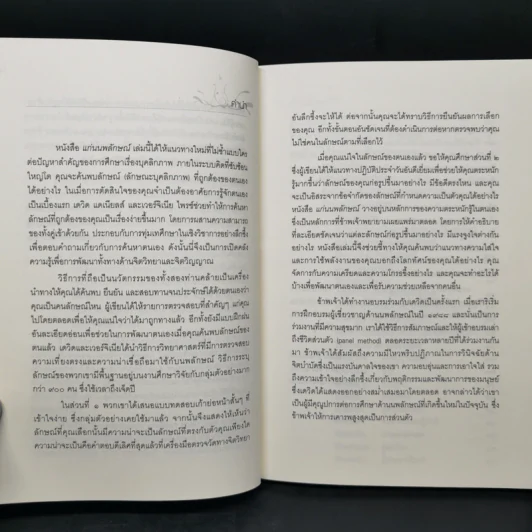 คำนำ
หนังสือ แก่นนพลักษณ์ เล่มนี้ได้ให้แนวทางใหม่ที่ไม่ซ้ำแบบใคร
ต่อปัญหาสำคัญของการศึกษาเรื่องบุคลิกภาพ ภายในระบบคิดที่ซับซ้อน
ใหญ่โต คุณจะค้นพบลักษณ์ (ลักษณะบุคลิกภาพ) ที่ถูกต้องของตนเอง
ได้อย่างไร ในเมื่อการตัดสินใจของคุณจำเป็นต้องอาศัยการรู้จักตนเอง
เป็นเบื้องแรก เดวิด แดเนียลส์ และเวอร์จิเนีย ไพรซ์ช่วยทำให้การค้นหา
ลักษณ์ที่ถูกต้องของคุณเป็นเรื่องง่ายขึ้นมาก โดยการผสานความสามารถ
ของทั้งคู่เข้าด้วยกัน ประกอบกับการทุ่มเทศึกษาในเชิงวิชาการอย่างลึกซึ้ง
เพื่อตอบคำถามเกี่ยวกับการค้นหาตนเอง ดังนั้นนี่จึงเป็นการเปิดคลัง
ความรู้เพื่อการพัฒนาทั้งทางด้านจิตวิทยาและจิตวิญญาณ
วิธีการที่ถือเป็นนวัตกรรมของทั้งสองท่านคล้ายเป็นเครื่อง
นำทางให้คุณได้ค้นพบ ยืนยัน และสอบทานจนประจักษ์ได้ด้วยตนเองว่า
คุณเป็นคนลักษณ์ไหน ผู้เขียนได้ให้รายการตรวจสอบที่สำคัญๆ แก่คุณ
ไปโดยตลอดเพื่อให้คุณแน่ใจว่าได้มาถูกทางแล้ว อีกทั้งยังมีแบบฝึกฝน
อันละเอียดอ่อนเพื่อช่วยในการพัฒนาตนเองเมื่อคุณค้นพบลักษณ์ของ
ตนแล้ว เดวิดและเวอร์จิเนียได้นำวิธีการวิทยาศาสตร์ที่มีการตรวจสอบ
ความเที่ยงตรงและความน่าเชื่อถือมาใช้กับนพลักษณ์ วิธีการระบุ
ลักษณ์ของพวกเขามีพื้นฐานอยู่บนงานศึกษาวิจัยกับกลุ่มตัวอย่างมาก
กว่า ๙๐๐ คน ซึ่งใช้เวลาถึงเจ็ดปี
ในส่วนที่ ๑ พวกเขาได้เสนอแบบทดสอบเก้าย่อหน้าสั้นๆ ที่
เข้าใจง่าย ซึ่งกลุ่มตัวอย่างเคยใช้มาแล้ว จากนั้นจึงแสดงให้เห็นว่า
ลักษณ์ที่คุณเลือกนั้นมีความน่าจะเป็นลักษณ์ที่ตรงกับตัวคุณเพียงใด
ความน่าจะเป็นนี้คือคำตอบดีเลิศที่สุดแล้วที่เครื่องมือตรวจวัดทางจิตวิทยา
อันลึกซึ้งจะให้ได้ ต่อจากนั้นคุณจะได้ทราบวิธีการยืนยันผลการเลือก
ของคุณ อีกทั้งขั้นตอนอันชัดเจนที่ต้องดำเนินการต่อหากตรวจพบว่าคุณ
ไม่ใช่คนในลักษณ์ตามที่เลือกไว้
เมื่อคุณแน่ใจในลักษณ์ของตนเองแล้ว ขอให้คุณศึกษาส่วนที่ ๒
ซึ่งผู้เขียนได้ให้แนวทางปฏิบัติประจำวันอันดีเยี่ยมเพื่อช่วยให้คุณตระหนัก
รู้มากขึ้นว่าลักษณ์ของคุณก่อรูปขึ้นมาอย่างไร มีข้อดีตรงไหน และคุณ
จะเป็นอิสระจากข้อจำกัดของลักษณ์ที่กำหนดความเป็นตัวคุณได้อย่างไร
หนังสือ แก่นนพลักษณ์ วางอยู่บนหลักการของความตระหนักรู้ในตนเอง
ซึ่งเป็นหลักการที่ข้าพเจ้าพยายามเผยแพร่มาตลอด โดยการให้คำอธิบาย
ที่ละเอียดชัดเจนว่าแต่ละลักษณ์ก่อรูปขึ้นมาอย่างไร มีแรงจูงใจต่างกัน
อย่างไร หนังสือเล่มนี้จึงช่วยชี้ทางให้คุณค้นพบว่าแนวทางความใส่ใจ
และการใช้พลังงานของคุณบอกถึงโลกทัศน์ของคุณได้อย่างไร คุณ
จัดการกับความเครียดและความโกรธขึ้งอย่างไร และคุณจะทำอะไรได้
บ้างเพื่อพัฒนาตนเองและเพื่อรับความช่วยเหลือจากคนอื่น
ข้าพเจ้าได้ทำงานอบรมร่วมกับเดวิดเป็นครั้งแรก เมื่อเราริเริ่ม
การฝึกอบรมผู้เชี่ยวชาญด้านนพลักษณ์ในปี ๑๙๘๘ และนั่นเป็นการ
ร่วมงานที่มีความสุขมาก เราได้ใช้วิธีการสัมภาษณ์และให้ผู้เข้าอบรมเล่า
ถึงชีวิตส่วนตัว (panel method) ตลอดระยะเวลาหลายปีที่ได้ร่วมงานกัน
มา ข้าพเจ้าได้สัมผัสถึงความมีไหวพริบปฏิภาณในการวินิจฉัยด้าน
จิตบำบัดซึ่งเป็นแรงบันดาลใจของเขา ความอบอุ่นและการเอาใจใส่ รวม
ถึงความเข้าใจอย่างลึกซึ้งเกี่ยวกับพฤติกรรมและพัฒนาการของมนุษย์
ซึ่งเดวิดได้แสดงออกอย่างสม่ำเสมอมาโดยตลอด อาจกล่าวได้ว่าเขา
เป็นผู้มีคุณูปการต่อการศึกษาด้านนพลักษณ์ที่เกิดขึ้นใหม่ในปัจจุบัน ซึ่ง
ข้าพเจ้าให้การเคารพสูงสุดเป็นการส่วนตัว